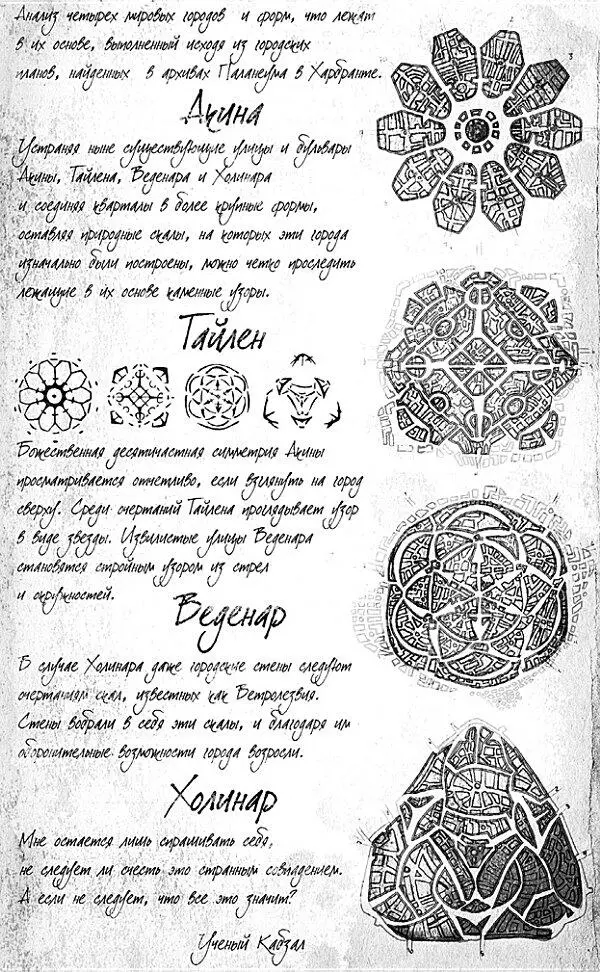 Анализ четырех мировых городов и форм, что лежат
в их основе, выполненный исходя из городских
планов, найденных в архивах Паланеума в Харбранте.
Акина
Устраняя ныне существующие улицы и бульвары
Акины, Тайлена, Веденара и Холинара
и соединяя кварталы в более крупные формы,
оставляя природные скалы, на которых эти города
изначально были построены, можно четко проследить
лежащие в их основе каменные узоры.
Тайлен
Божественная десятичастная симметрия Акины
просматривается отчетливо, если взглянуть на город
сверху. Среди очертаний Тайлена проглядывает узор
в виде звезды. Извилистые улицы Веденара
становятся стройным узором из стрел
и окружностей.
Веденар
В случае Холинара даже городские стены следуют
очертаниям скал, известных как Ветролезвия.
Стены вобрали в себя эти скалы, и благодаря им
оборонительные возможности города возросли.
Холинар
Мне остается лишь спрашивать себя,
не следует ли счесть это странным совпадением.
А если не следует, что все это значит?
Ученый Кабзал